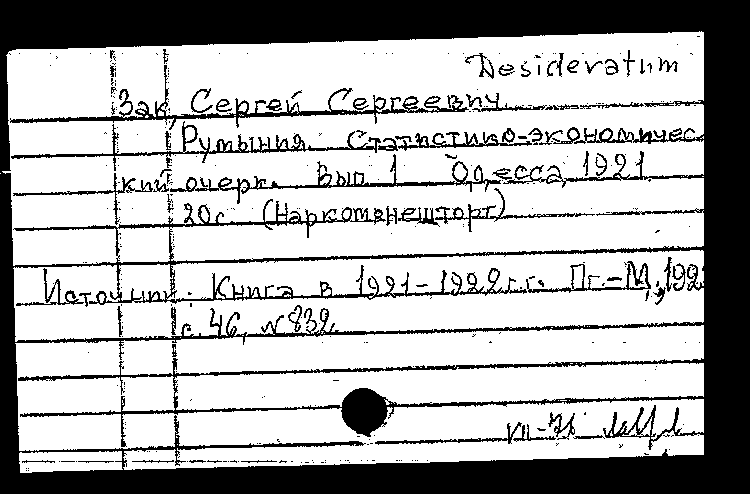 Desideratum
Зак, Сергей Сергеевич.
Румыния. Статистико-экономичес-
кий очерк. Вып. 1 Одесса, 1921
20с. (Наркомвнешторг)
Источник: Книга в 1921-1922 г.г. Пг.-М., 192
с. 46, N 832
VII-76